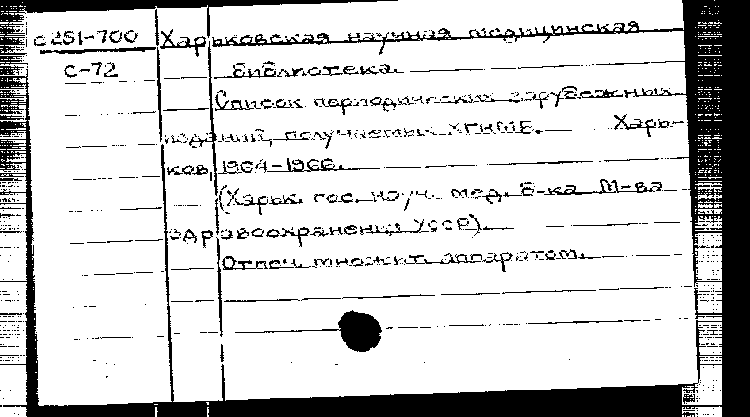 с251-700 Харьковская научная медицинская
С-72 библиотека.
Список периодических зарубежных
изданий, получаемых ХГНМБ. Харь-
ков, 1964-1966.
(Харьк. гос. науч. мед. б-ка М-ва
здравоохранения УССР).
Отпеч. множит. аппаратом.